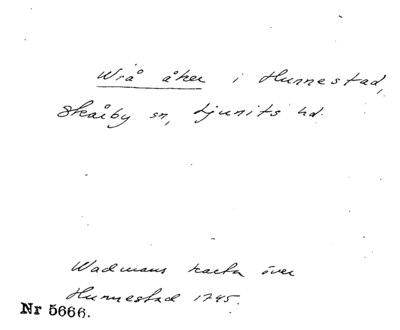 Wrå åker i Hunnestad,
Skårby sn, Ljunits hd.
Wadmans karta över
Hunnestad 1745.
Nr 5666.